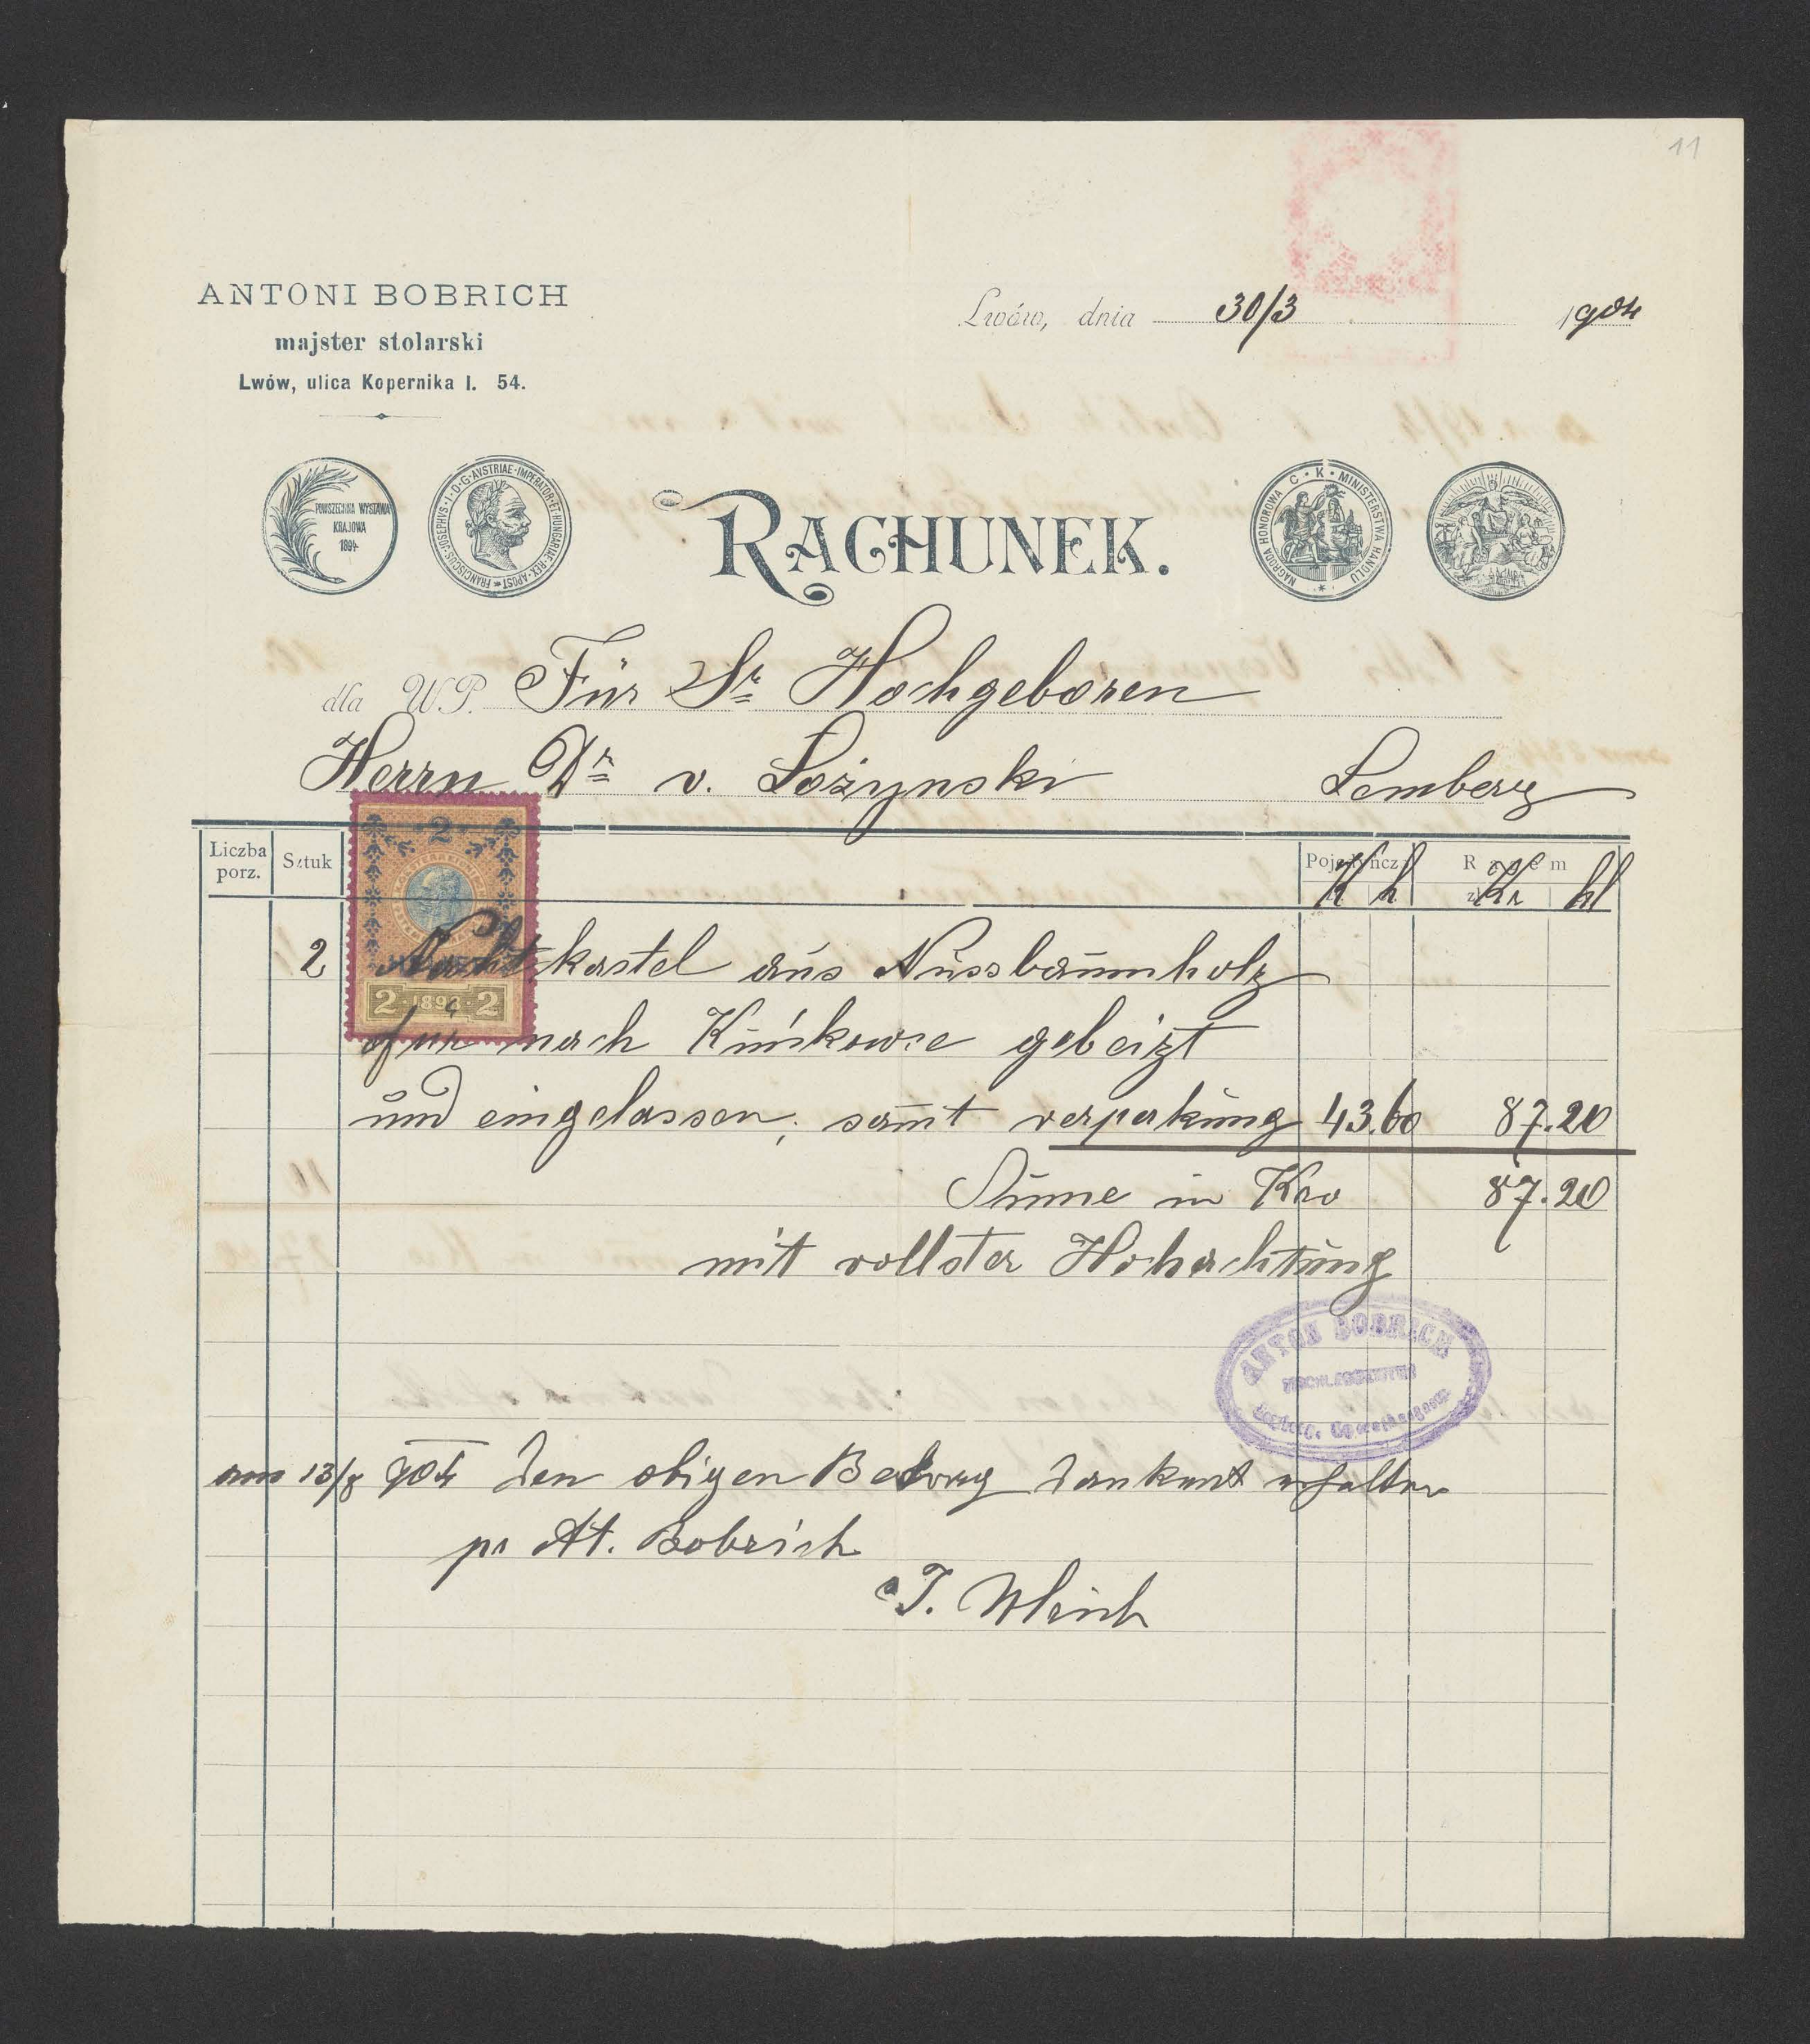 11
ANTONI BOBRICH
majster stolarski
Lwów, ulica Kopernika l. 54.
Lwów, dnia 30/3 1904
POWSZECHNA WYSTAWA
KRAJOWA
1894
FRANCISCUS·JOSEPHVS·I·D·G·AVSTRIAE·IMPERATOR·ET·HUNGARIAE·REX·APOST
RACHUNEK.
NAGRODA HONOROWA C·K·MINISTERSTWA HANDLU
dla WP. Für Sr Hochgeboren
Herrn Dr v. Łożynski Lemberg
Liczba porz. Sztuk Pojedyncza Razem
K h Kr hl
2
2 Nachtkastel aus Nussbaumholz
2 189 2
für nach gebeizt
und eingelassen, samt verpakung 43.60 87.20
Sume in Kro 87.20
mit vollster Hohachtung
ANTON BOBRICH
TISCHLERMEISTER
am 13/8 904 den obigen Betrag dankent erhalten
pr At. Bobrich